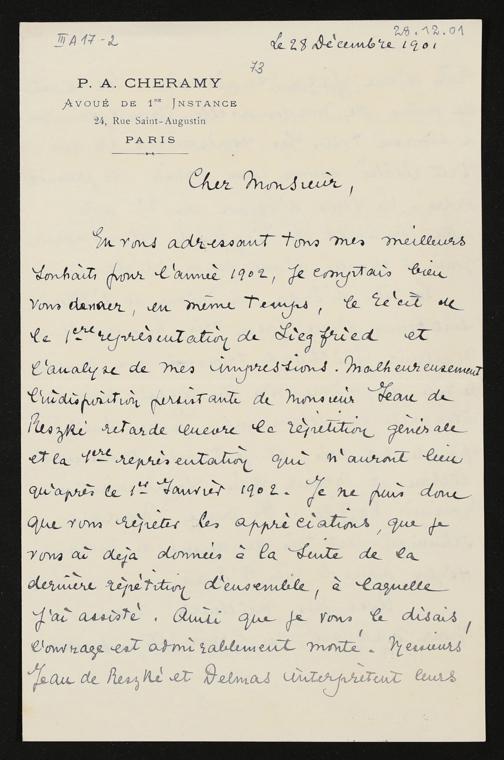 III A 17-2
28.12.01
Le 28 Décembre 1901
73
P. A. CHERAMY
AVOUÉ DE 1re INSTANCE
24, Rue Saint-Augustin
PARIS
Cher Monsieur,
En vous adressant tous mes meilleurs
souhaits pour l'année 1902, je comptais bien
vous donner, en même temps, le récit de
la 1ere représentation de Siegfried et
l'analyse de mes impressions. Malheureusement
l'indisposition persistante de Monsieur Jean de
Reszké retarde encore la répétition générale
et la 1ere représentation qui n'auront lieu
qu'après le 1er Janvier 1902. Je ne puis donc
que vous répéter les appréciations, que je
vous ai déjà données à la suite de la
dernière répétition d'ensemble, à laquelle
j'ai assisté. Ainsi que je vous le disais,
l'ouvrage est admirablement monté. Messieurs
Jean de Reszké et Delmas interprètent leurs